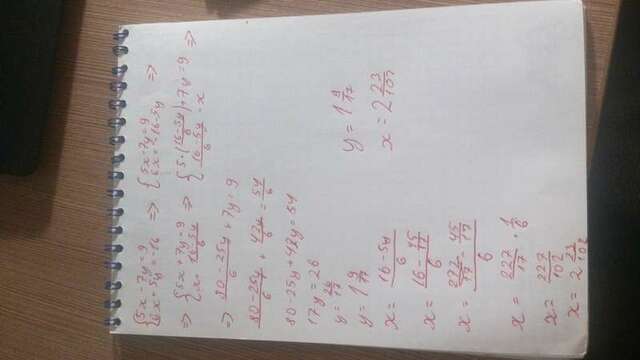 {5x - 7y = 9 {6x + 5y = -16 => {5x - 7y = 9 {6x = -16 - 5y =>
=> {5x + 7y = 9 {x = (16 - 5y)/6 => {5·((16 - 5y)/6) + 7y = 9 {(16 - 5y)/6 = x =>
=> (80 - 25y)/6 + 7y = 9
(80 - 25y)/6 + 42y/6 = 54/6
80 - 25y + 42y = 54
17y = 26
y = 26/17
y = 1 9/17
x = (16 - 5y)/6
x = (16 - 45/17)/6
x = (272/17 - 45/17)/6
x = 227/17 · 1/6
x = 227/102
x = 2 23/102
y = 1 9/17
x = 2 23/102